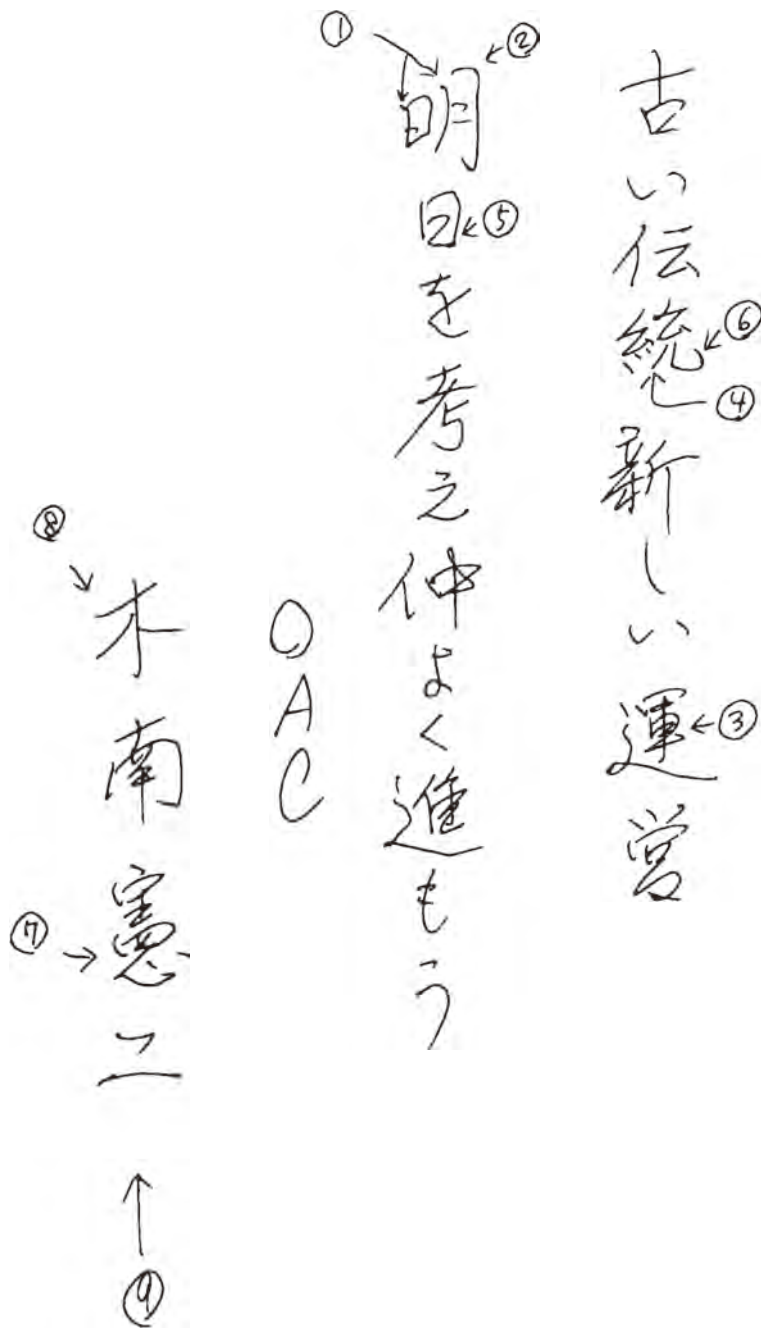 古い伝統新しい運営
明日を考え仲よく進もう
OAC
木南憲二
①
②
③
④
⑤
⑥
⑦
⑧
⑨